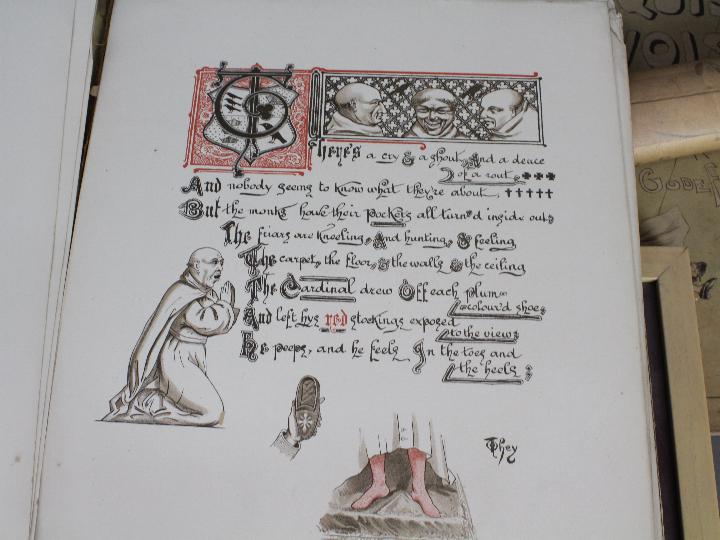 There's a cry & a shout, And a deuce
of a rout,
And nobody seems to know what they're about,
But the monks have their pockets all turn'd inside out;
The friars are kneeling, And hunting, & feeling
The carpet, the floor, & the walls & the ceiling
The Cardinal drew Off each plum-
colour'd shoe,
And left hys red stockings exposed
to the view;
He peeps, and he feels In the toes and
the heels;
They
GODEF